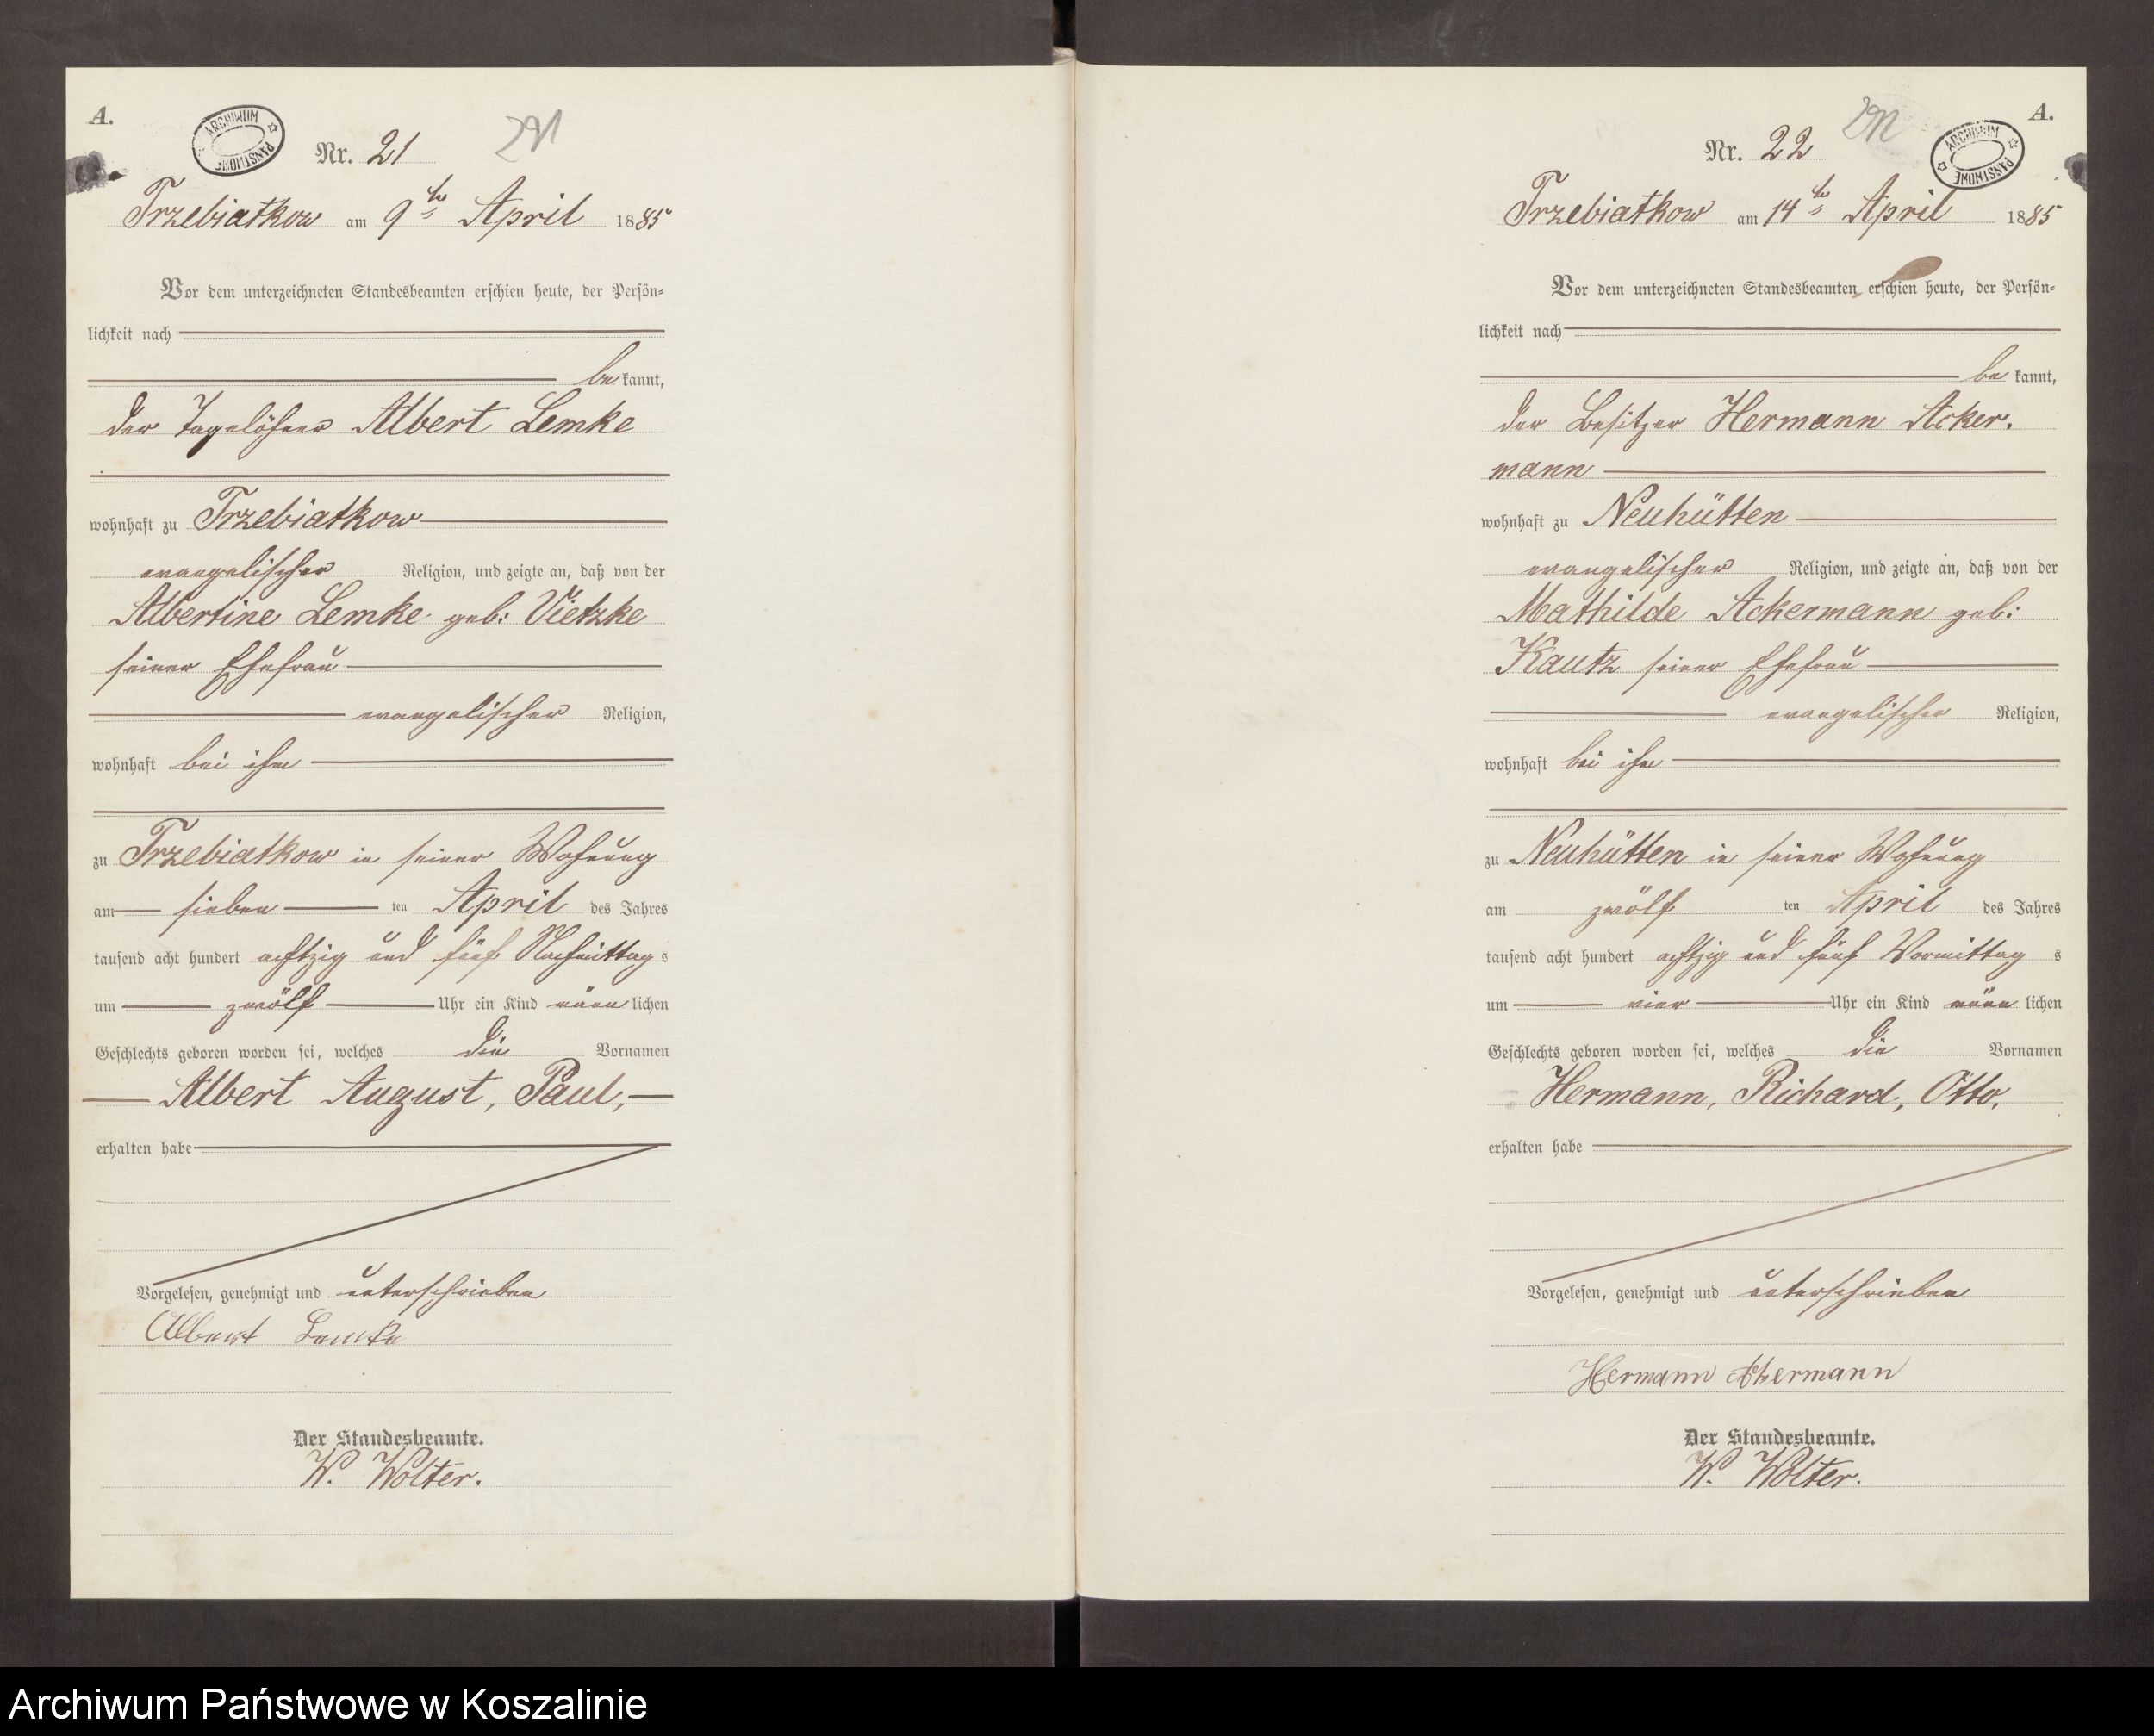 A.
ARCHIWUM PAŃSTWOWE
Nr. 21
291
Trzebiatkow am 9ten April 1885
Vor dem unterzeichneten Standesbeamten erschien heute, der Persön-
lichkeit nach
be kannt,
der Tagelöhner Albert Lemke
wohnhaft zu Trzebiatkow
evangelischer Religion, und zeigte an, daß von der
Albertine Lemke geb: Vietzke
seiner Ehefrau
evangelischer Religion,
wohnhaft bei ihm
zu Trzebiatkow in seiner Wohnung
am sieben ten April des Jahres
tausend acht hundert achtzig und fünf Nachmittag s
um zwölf Uhr ein Kind männ lichen
Geschlechts geboren worden sei, welches die Vornamen
Albert August, Paul,
erhalten habe
Vorgelesen, genehmigt und unterschrieben
Albert Lemke
Der Standesbeamte.
W. Wolter.
A.
ARCHIWUM PAŃSTWOWE
Nr. 22
Trzebiatkow am 14ten April 1885
Vor dem unterzeichneten Standesbeamten erschien heute, der Persön-
lichkeit nach
be kannt,
der Besitzer Hermann Acker.
mann
wohnhaft zu Neuhütten
evangelischer Religion, und zeigte an, daß von der
Mathilde Ackermann geb:
Kautz seiner Ehefrau
evangelischer Religion,
wohnhaft bei ihm
zu Neuhütten in seiner Wohnung
am zwölf ten April des Jahres
tausend acht hundert achtzig und fünf Vormittag s
um vier Uhr ein Kind männ lichen
Geschlechts geboren worden sei, welches die Vornamen
Hermann, Richard, Otto,
erhalten habe
Vorgelesen, genehmigt und unterschrieben
Hermann Akermann
Der Standesbeamte.
W. Wolter.
Archiwum Państwowe w Koszalinie